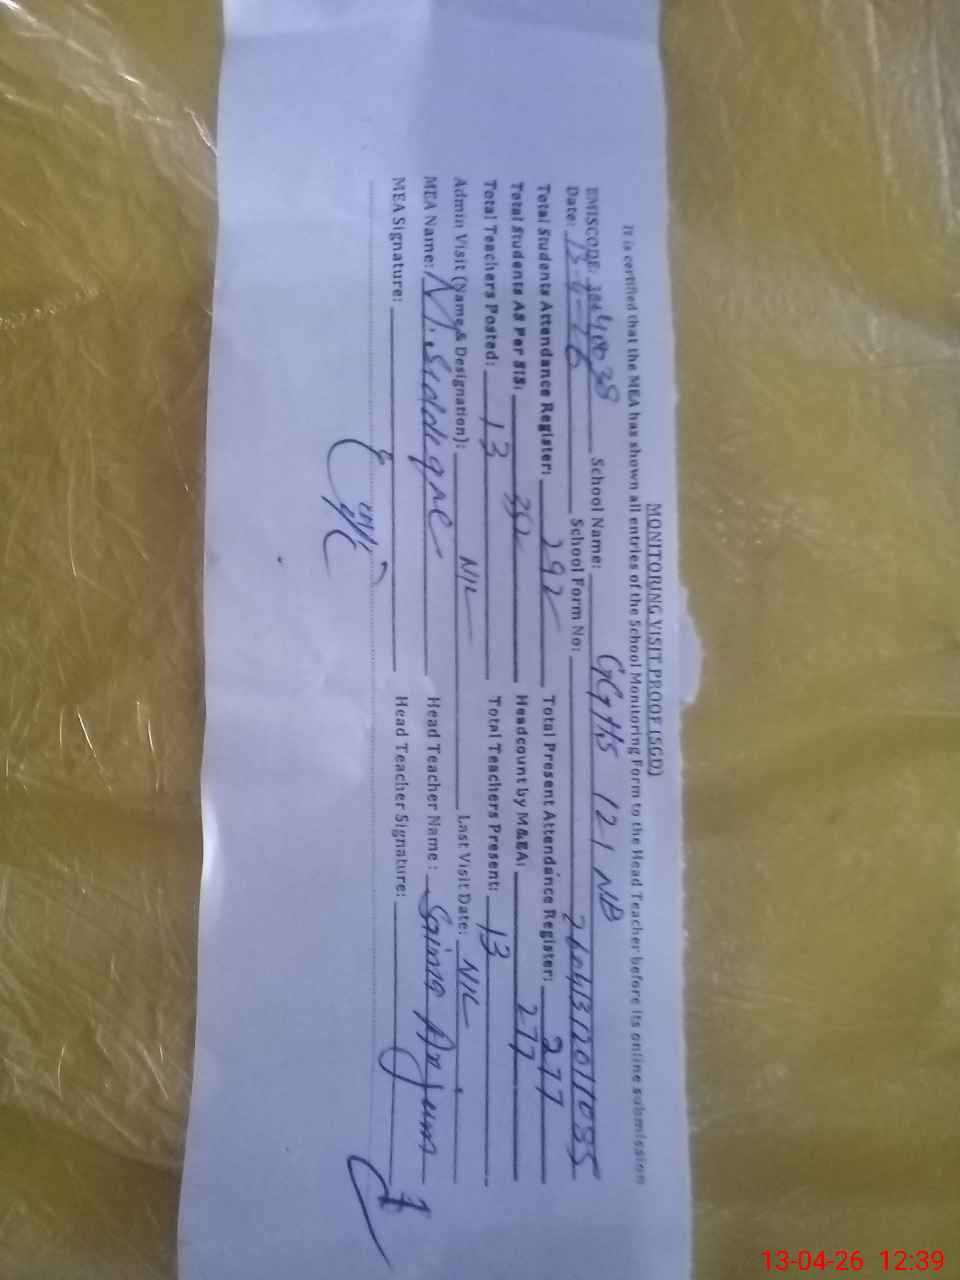 MONITORING VISIT PROOF (SGD)
It is certified that the MEA has shown all entries of the School Monitoring Form to the Head Teacher before its online submission
EMISCODE: School Name: GGHS 121 NB
Date: 13-4-26 School Form No:
Total Students Attendance Register: 292 Total Present Attendance Register: 277
Total Students As Per SIS: Headcount by M&EA: 277
Total Teachers Posted: 13 Total Teachers Present: 13
Admin Visit (Name & Designation): NIL Last Visit Date: NIL
MEA Name: M. Siddique Head Teacher Name: Saima Anjum
MEA Signature: Head Teacher Signature:
13-04-26 12:39